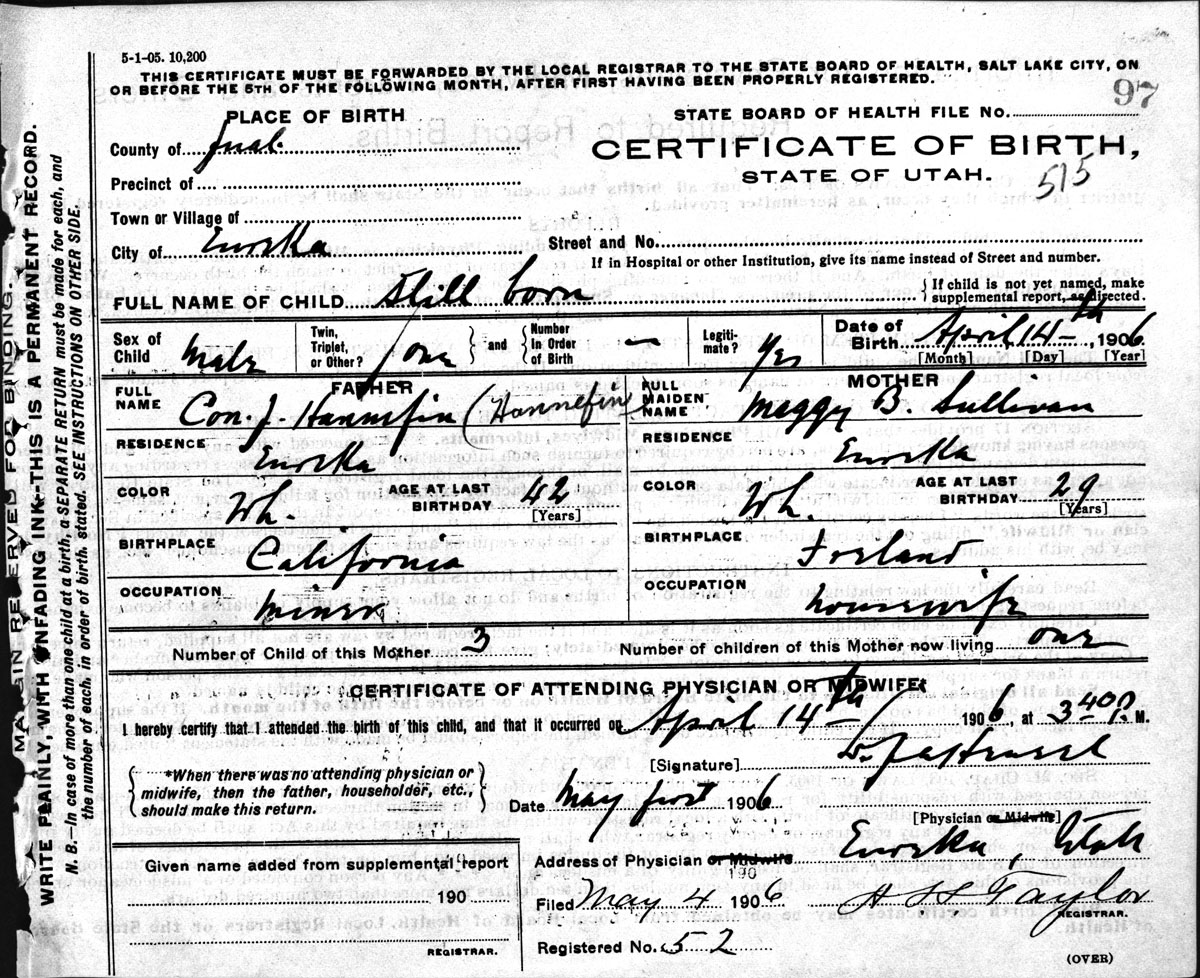 5-1-05. 10,200
THIS CERTIFICATE MUST BE FORWARDED BY THE LOCAL REGISTRAR TO THE STATE BOARD OF HEALTH, SALT LAKE CITY, ON
OR BEFORE THE 5TH OF THE FOLLOWING MONTH, AFTER FIRST HAVING BEEN PROPERLY REGISTERED.
97
PLACE OF BIRTH
STATE BOARD OF HEALTH FILE NO.
County of Juab.
CERTIFICATE OF BIRTH,
Precinct of
STATE OF UTAH. 515
Town or Village of
City of Eureka
Street and No.
If in Hospital or other Institution, give its name instead of Street and number.
FULL NAME OF CHILD Still born
{ If child is not yet named, make
supplemental report, as directed.
Sex of Child Male
Twin, Triplet, or Other? one } and { Number In Order of Birth —
Legitimate? Yes
Date of Birth April 14th, 1906
[Month] [Day] [Year]
FATHER
FULL NAME Con. J. Hannifin (Hannefin)
RESIDENCE Eureka
COLOR Wh. AGE AT LAST BIRTHDAY 42 [Years]
BIRTHPLACE California
OCCUPATION Miner
MOTHER
FULL MAIDEN NAME Meggy B. Sullivan
RESIDENCE Eureka
COLOR Wh. AGE AT LAST BIRTHDAY 29 [Years]
BIRTHPLACE Ireland
OCCUPATION housewife
Number of Child of this Mother 3 Number of children of this Mother now living one
CERTIFICATE OF ATTENDING PHYSICIAN OR MIDWIFE
I hereby certify that I attended the birth of this child, and that it occurred on April 14th 1906, at 3 40 P. M.
[Signature]
{ *When there was no attending physician or
midwife, then the father, householder, etc.,
should make this return. }
Date May first 1906
[Physician or Midwife]
Given name added from supplemental report
190
REGISTRAR.
Address of Physician or Midwife Eureka, Utah
190
Filed May 4 1906 Taylor
REGISTRAR.
Registered No. 52
(OVER)
MARGIN RESERVED FOR BINDING.
WRITE PLAINLY WITH UNFADING INK--THIS IS A PERMANENT RECORD.
N. B.--In case of more than one child at a birth, a SEPARATE RETURN must be made for each, and
the number of each, in order of birth, stated. SEE INSTRUCTIONS ON OTHER SIDE.